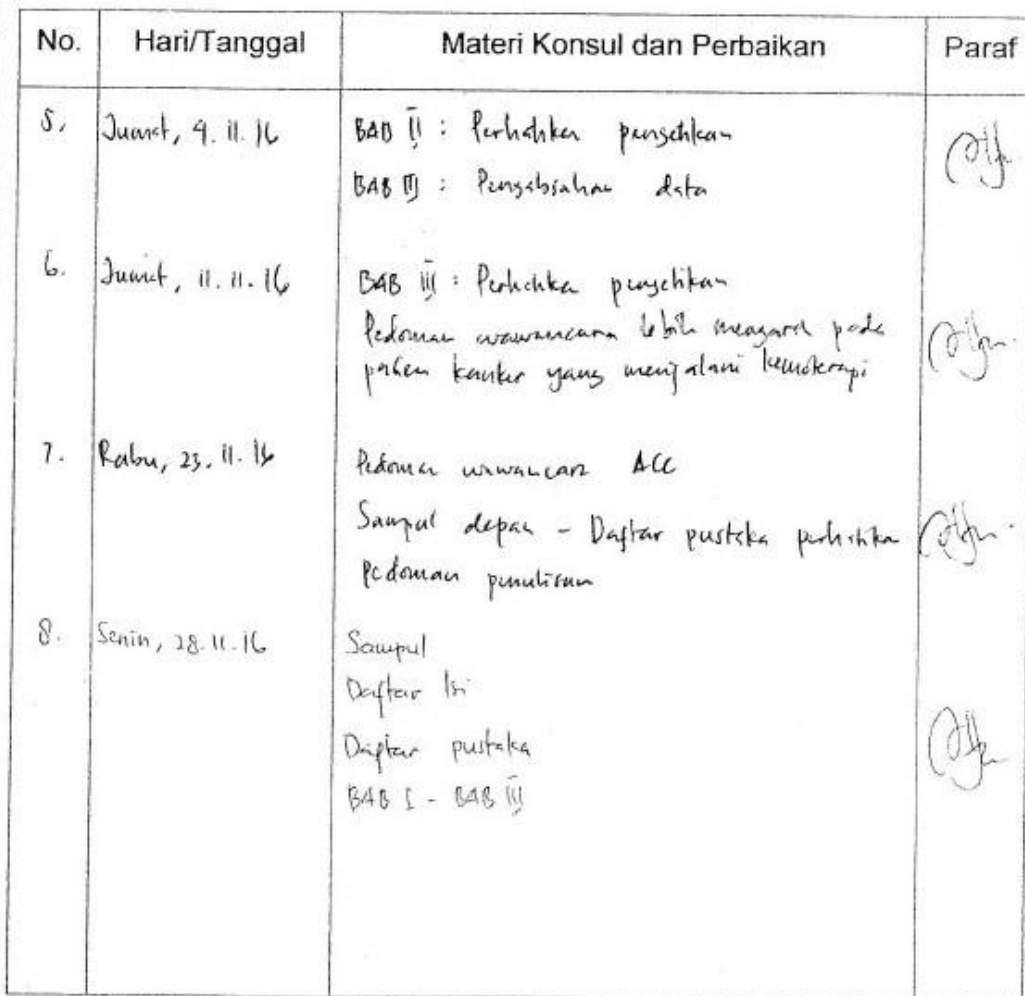 No. Hari/Tanggal Materi Konsul dan Perbaikan Paraf
5. Jumat, 11. 16 BAB II : Perhatikan pengetikan
BAB III : Pengabsahan data
6. Jumat, 11. 11. 16 BAB III : Perhatikan pengetikan
Pedoman wawancara lebih mengarah pada
pasien kanker yang menjalani kemoterapi
7. Rabu, 23. 11. 16 Pedoman wawancara ACC
Sampul depan - Daftar pustaka perhatikan
pedoman penulisan
8. Senin, 28. 11. 16 Sampul
Daftar Isi
Daftar pustaka
BAB I - BAB III